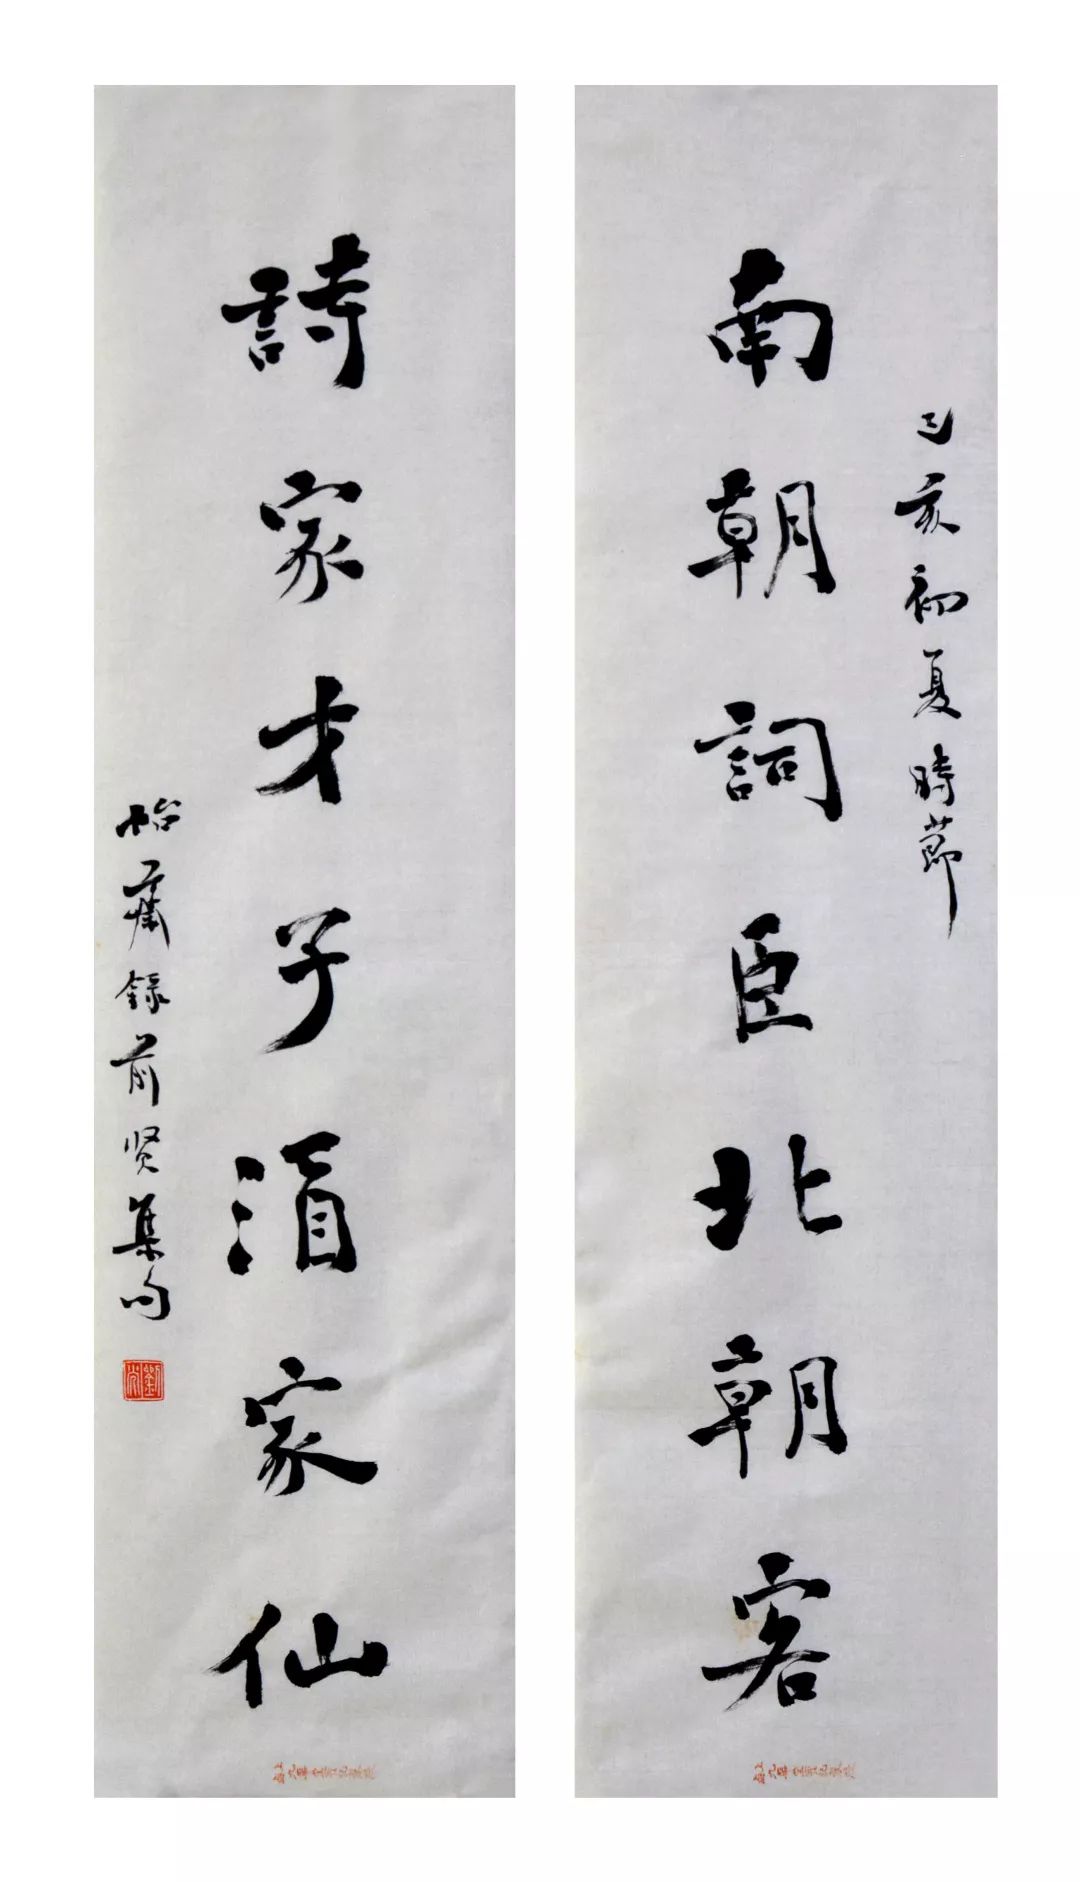 己亥初夏時節
南朝詞臣北朝客
詩家才子酒家仙
怡錄前贤集句
劉